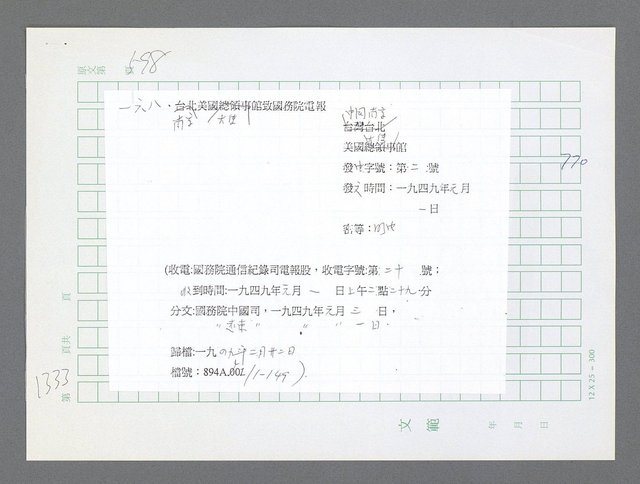 原文第 598 頁
一六八、台北美國總領事館致國務院電報
南京 大使
中國南京
台灣台北
大使
美國總領事館
770
發文字號：第二號
發文時間：一九四九年元月
一日
密等：
(收電:國務院通信紀錄司電報股，收電字號:第二十號；
收到時間:一九四九年元月一日上午二點二十九分
分文:國務院中國司，一九四九年元月三日，
〃遠東〃 〃 〃 一日.
歸檔:一九四九年二月廿二日
檔號：894A.00/1-149).
1333
第 頁共 頁
文範
年 月 日
12 X 25 = 300